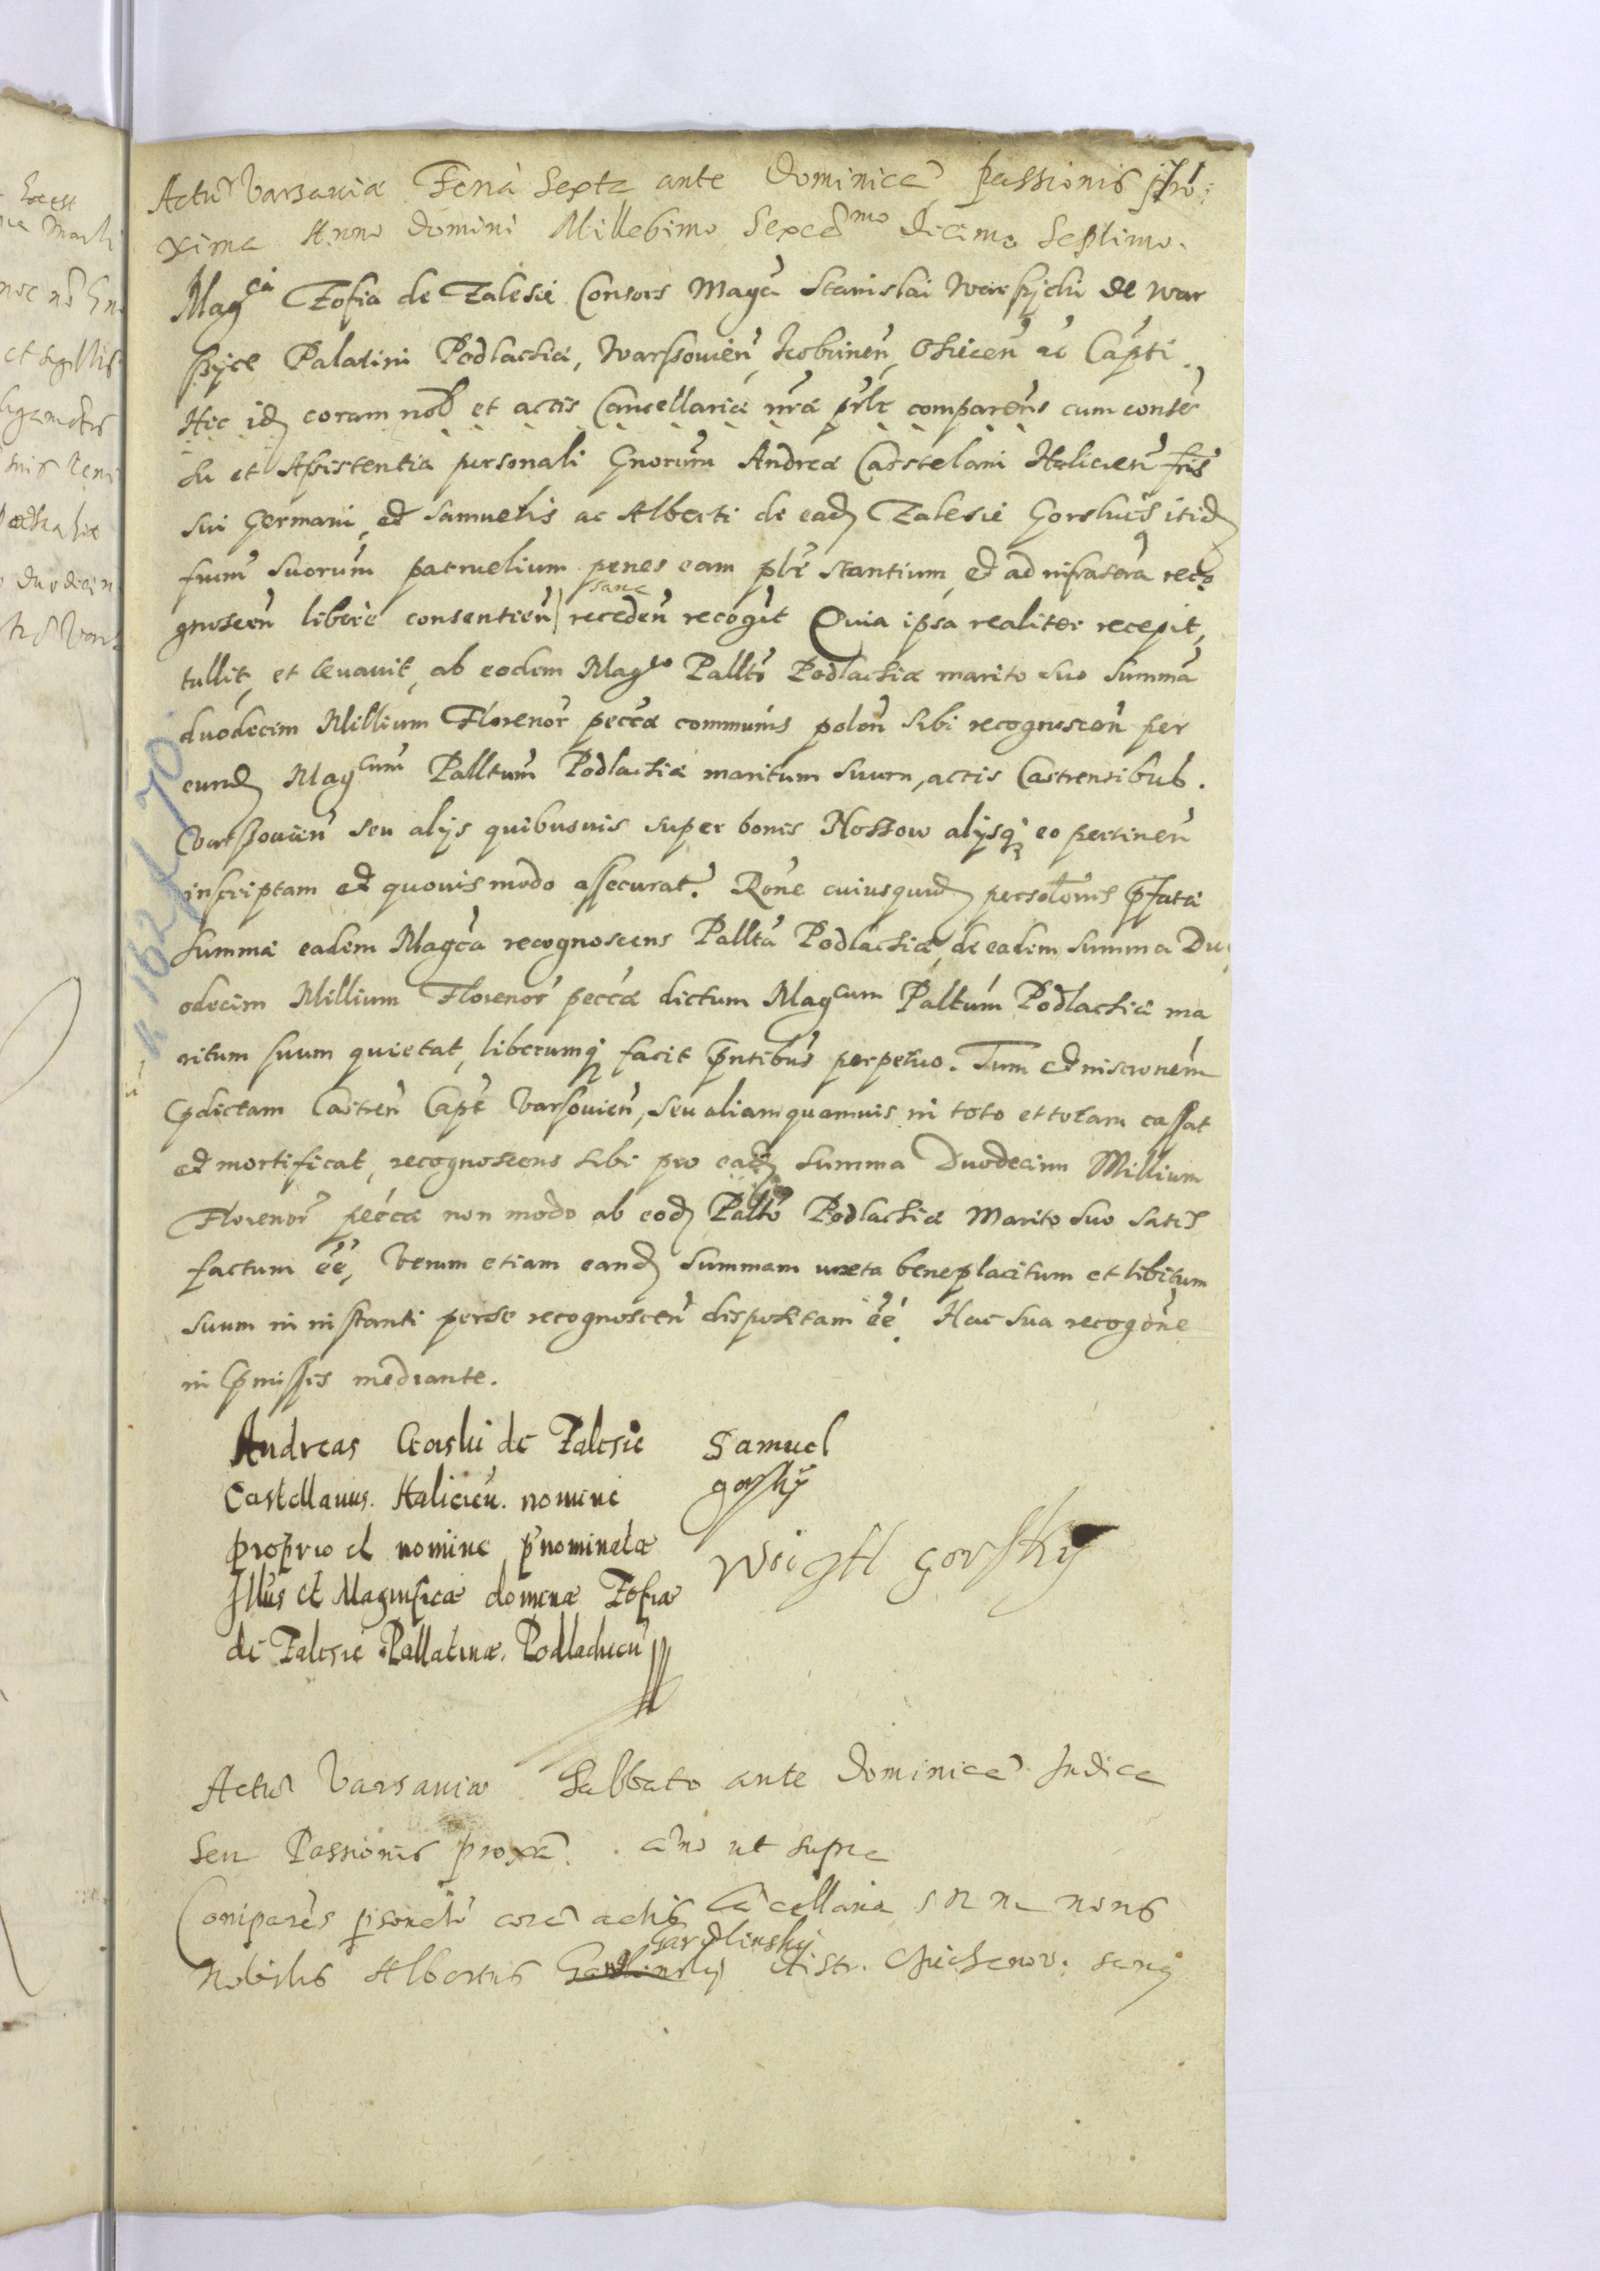 Actū Varsaviæ Feria Sexta ante Dominicā Passionis pro:
xima Anno Domini Millesimo Sexcēmo Decimo Septimo.
Magca Zofia de Zalesie Consors Magci Stanislai Warszyczki de War
szyce Palatini Podlachiæ, Warssovień, Kobrineń, Osieceń ac Capti.
Hic idē coram nob et actis Cancellariæ nræ prlr comparens cum consen
su et Assistentia personali Gnorum Andreæ Castelani Halicień fris
sui Germani, et Samuelis ac Alberti de eadē Zalesie Gorskich itidē
frum suorum patruelium penes eam plr stantium, et ad infrascra reco
gnosceń libere consentień sane recedeń recogit Quia ipsa realiter recepit,
tullit, et levavit, ab eodem Magco Pallto Podlachiæ marito suo summā
duodecim Millium Florenor pecciæ communis poloń sibi recognosceń per
eundē Magcum Palltum Podlachiæ maritum suum, actis Castrensibus.
Varssovień seu alijs quibusvis super bonis Nossow alijsq eo pertineń
inscriptam et quovismodo assecurat. Rone cuiusquidē persolonis pfatæ
summæ eadem Magca recognoscens Pallta Podlachiæ, de eadem summa Du
odecim Millium Florenor pecciæ dictum Magcum Paltum Podlachiæ ma
ritum suum quietat, liberumq facit pntibus perpetuo. Tum et inscronem
pdictam Castreń Capt Varsovień, seu aliam quamvis in toto et totam cassat
et mortificat, recognoscens sibi pro eadē summa Duodecim Millium
Florenor pecciæ non modo ab eodē Palto Podlachiæ Marito suo satis
factum eē, verum etiam eandē summam iuxta beneplacitum et libitum
suum in instanti per se recognosceń dispositam eē. Hac sua recogōne
in pmissis mediante.
Andreas Gorski de Zalesie
Castellanus. Halicień. nomine
proprio et nomine pnominatæ
Illus et Magnificæ dominæ Zofiæ
de Zalesie Pallatinæ. Podlachień
Samuel
gorskÿ
Woicieh gorskÿ
Actū Varsaviæ Sabbato ante Dominicā Judica
seu Passionis proxā. año ut supra
Comparēs psonalr corā actis Cācellariæ S R M
Nobilis Albertus Gardlinskÿ